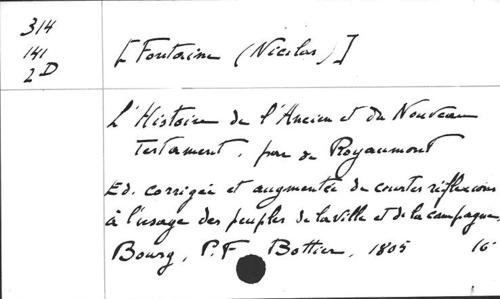 314
141
2D
[Fontaine (Nicolas)]
L'Histoire de l'Ancien et du Nouveau
Testament, par de Royaumont
Ed. corrigée et augmentée de courtes réflexions
à l'usage des peuples de la ville et de la campagne.
Bourg, P.F Bottier, 1805 16°